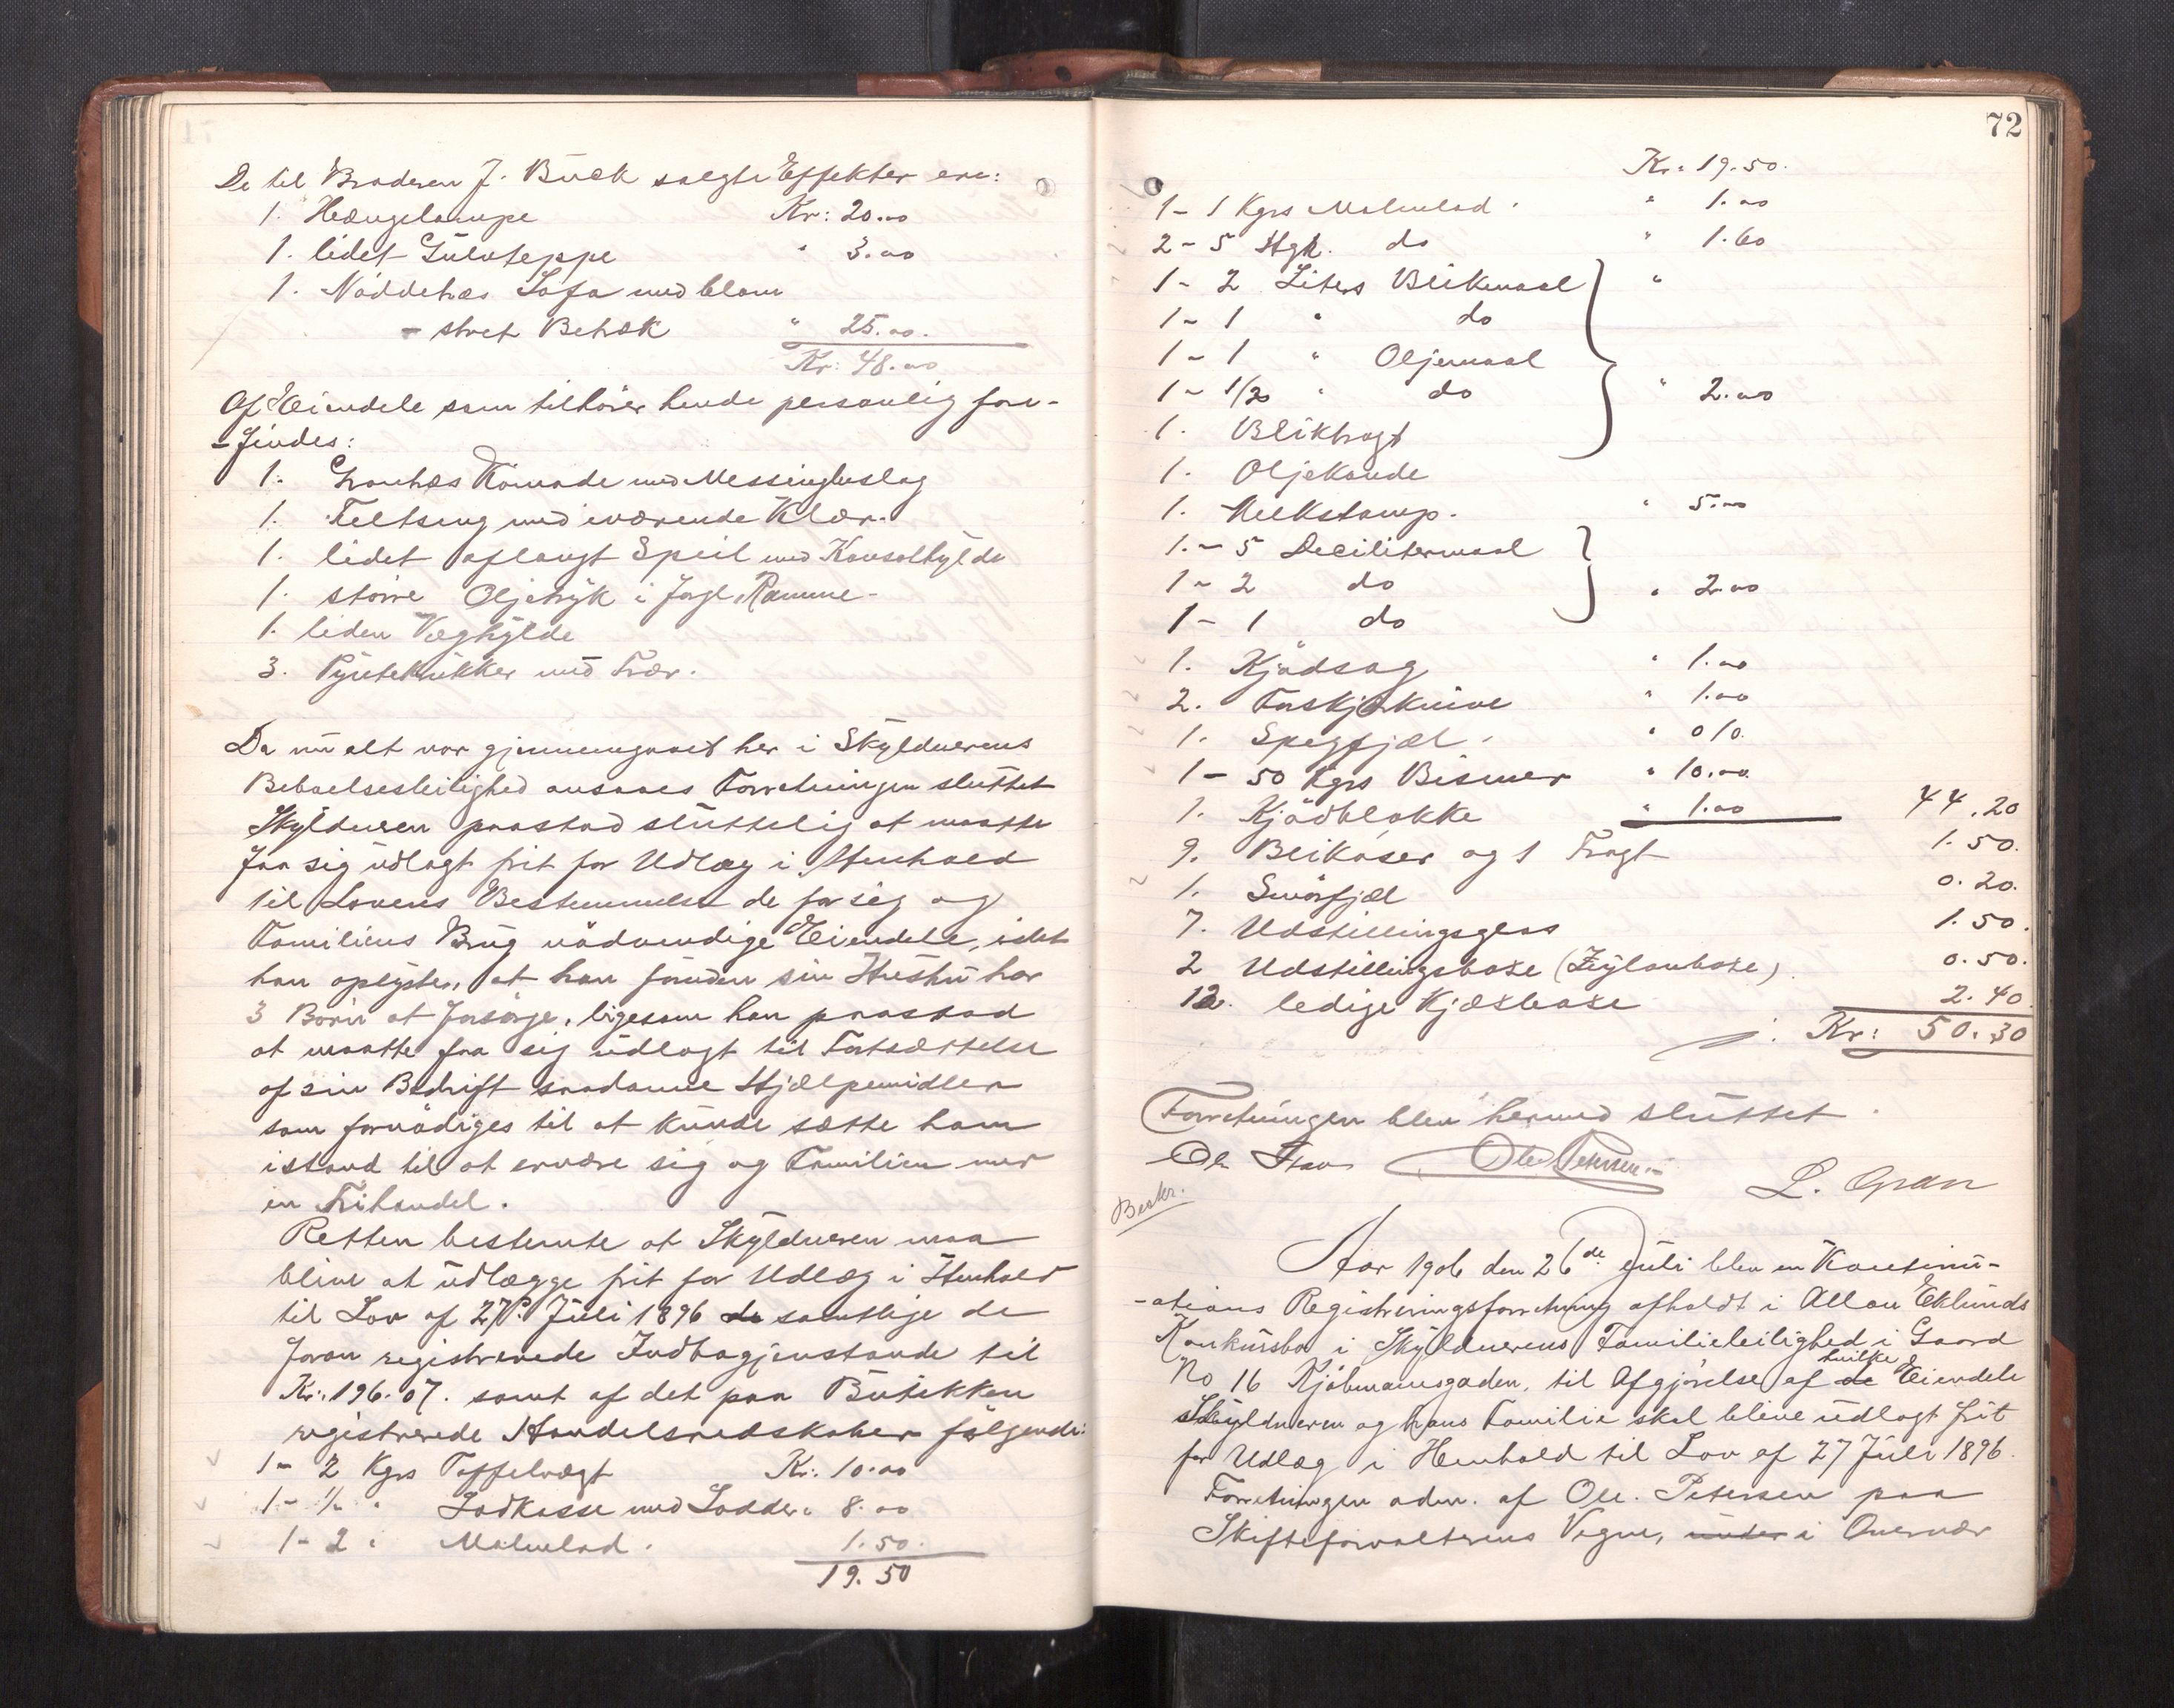 De til Broderen J. Buck solgte Effekter ere:
1. Hængelampe Kr: 20.00
1. lidet Gulvteppe " 3.00
1. Nöddetræs Sofa med blom
- stret Betræk " 25.00.
Kr: 48.00
Af Eiendele som tilhörer hende personlig fore-
- findes:
1. Grantræs Komode med Messingbeslag
1. Feltseng med iværende Klær.
1. lidet aflangt Speil med Konsolhylde
1. större Oljetryk i forgl. Ramme.
1. liden Væghylde
3. Pyntekrukker med Trær.
Da nu alt var gjennemgaaet her i Skyldnerens
Beboelsesleilighed ansaaes Forretningen sluttet
Skyldneren paastod sluttelig at maatte
faa sig udlagt frit for Udlæg i Henhold
til Lovens Bestemmelse de for sig og
Familiens Brug nödvendige Eiendele, idet
han oplyste, at han foruden sin Hustru har
3 Börn at forsörge, ligesom han paastod
at maatte faa sig udlagt til Fortsættelse
af sin Bedrift saadanne Hjælpemidler
som fornödiges til at kunde sætte ham
istand til at ernære sig og Familien ved
en Frihandel.
Retten bestemte at Skyldneren maa
blive at udlægge frit for Udlæg i Henhold
til Lov af 27. Juli 1896 de samtlige de
foran registrerede Indbogjenstande til
Kr: 196.07. samt af det paa Butikken
registrerede Handelsredskaber fölgende:
1- 2 Kgrs Taffelvægt Kr: 10.00
1- 1/2 " Lodkasse med Lodder " 8.00
1- 2 " Malmlod. 1.50.
19.50
72
Kr: 19.50.
1- 1 Kgrs Malmlod. " 1.00
2- 5 Htgr. do " 1.60
1- 2 Liters Blikmaal "
1- 1 " do
1- 1 " Oljemaal
1- 1/2 " do " 2.00
1. Bliktragt
1. Oljekande
1. Melkstamp. " 5.00
1.- 5 Decilitermaal
1- 2 do " 2.00
1- 1 do
1. Kjödsag " 1.00
2. Forskjærknive " 1.00
1. Spegfjæl. " 0 10.
1- 50 Kgrs Bismer " 10.00
1. Kjödblokke " 1.00 44.20
9. Blikdaser og 1 Tragt 1.50.
1. Smörfjæl 0.20.
7. Udstillingsglass 1.50.
2 Udstillingsbokse (Zeylonbokse). 0.50.
12. ledige Kjæxbokse 2.40.
Kr: 50.30
Forretningen blev hermed sluttet.
Ole Petersen
L. Gran
Beskr.
Aar 1906 den 26de Juli blev en Kontinu-
-ations Registreringsforretning afholdt i Allan Eklunds
Konkursbo i Skyldnerens Familieleilighed i Gaard
No 16 Kjöbmannsgaden, til Afgjörelse af de hvilke Eiendele
Skyldneren og hans Familie skal blive udlagt frit
for Udlæg i Henhold til Lov af 27 Juli 1896.
Forretningen adm. af Ole. Petersen paa
Skifteforvalterens Vegne, under i Overvær